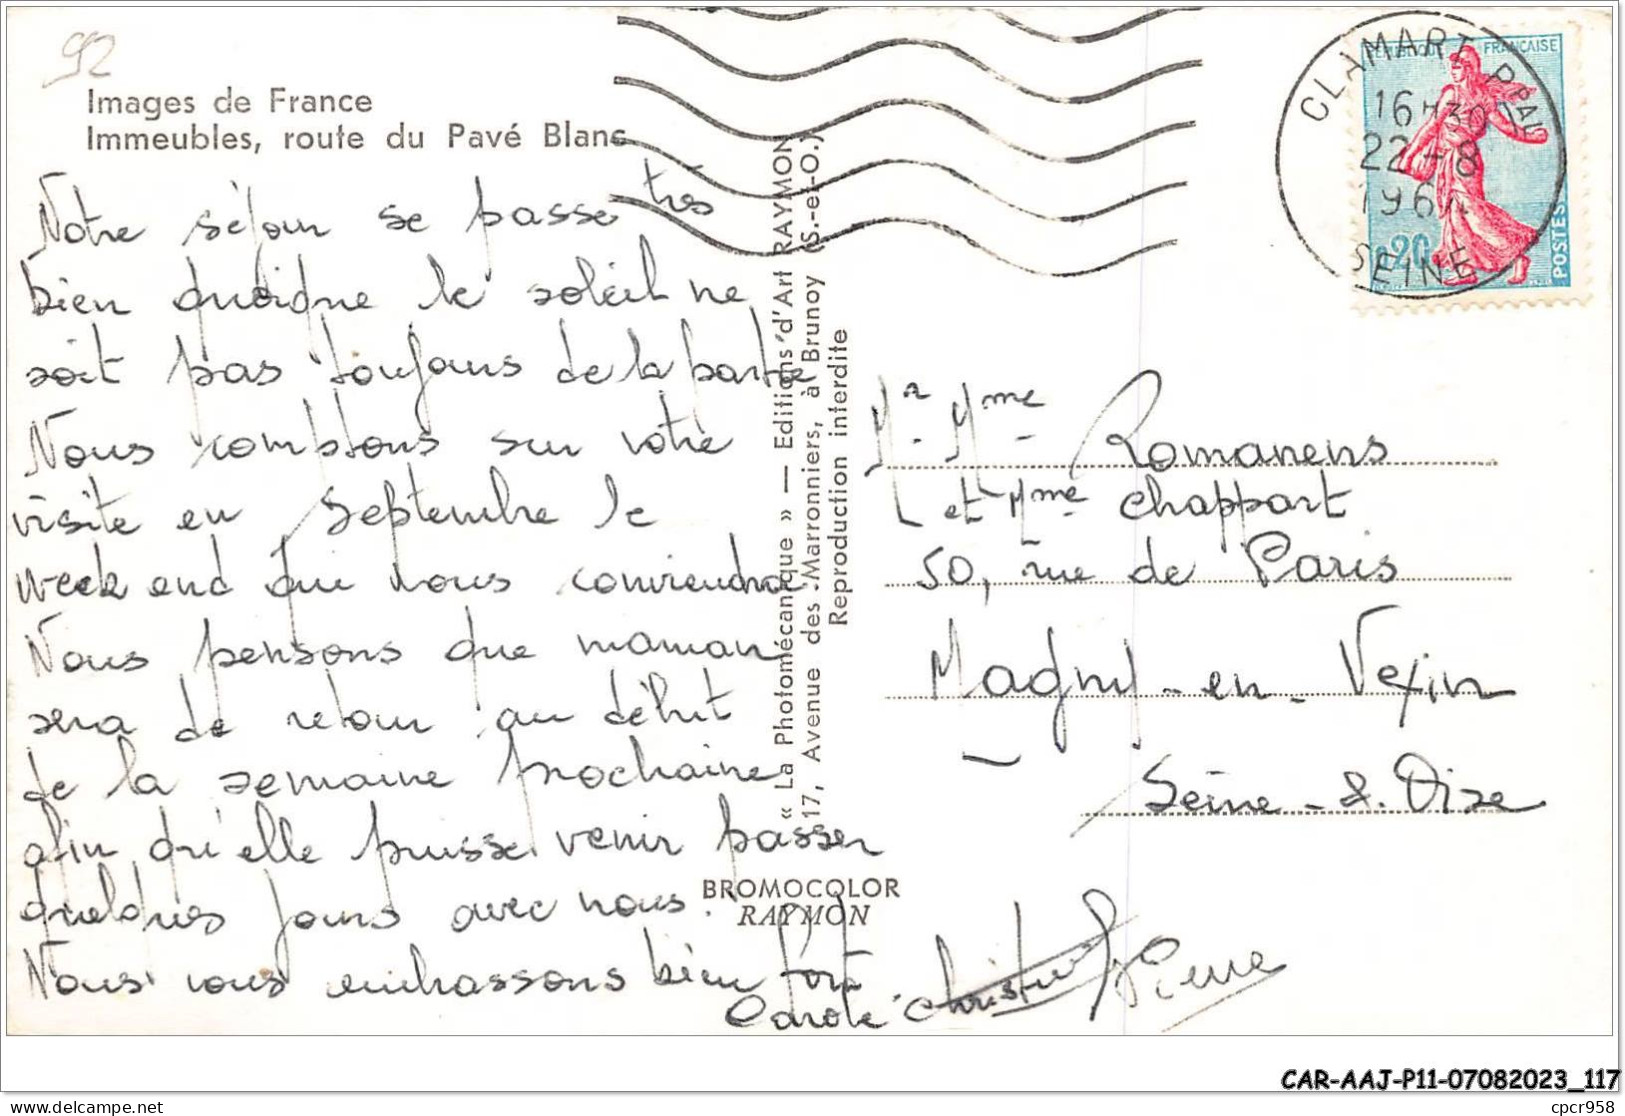 92
Images de France
Immeubles, route du Pavé Blanc
Notre séjour se passe très
bien quoique le soleil ne
soit pas toujours de la partie
Nous comptons sur votre
visite en Septembre le
week end qui vous conviendra
Nous pensons que maman
sera de retour au début
de la semaine prochaine
afin qu'elle puisse venir passer
quelques jours avec nous.
Nous vous embrassons bien fort
Carole Christine Pierre
« La Photomécanique » — Editions d'Art RAYMON
17, Avenue des Marronniers, à Brunoy (S.-et-O.)
Reproduction interdite
BROMOCOLOR
RAYMON
CLAMART PPAL
16H30
22-8
196
SEINE
REPUBLIQUE FRANCAISE
0,20
POSTES
Mr Mme Romanens
et Mme Chappart
50, rue de Paris
Magny-en-Vexin
Seine-&-Oise
CAR-AAJ-P11-07082023_117
cpcr958